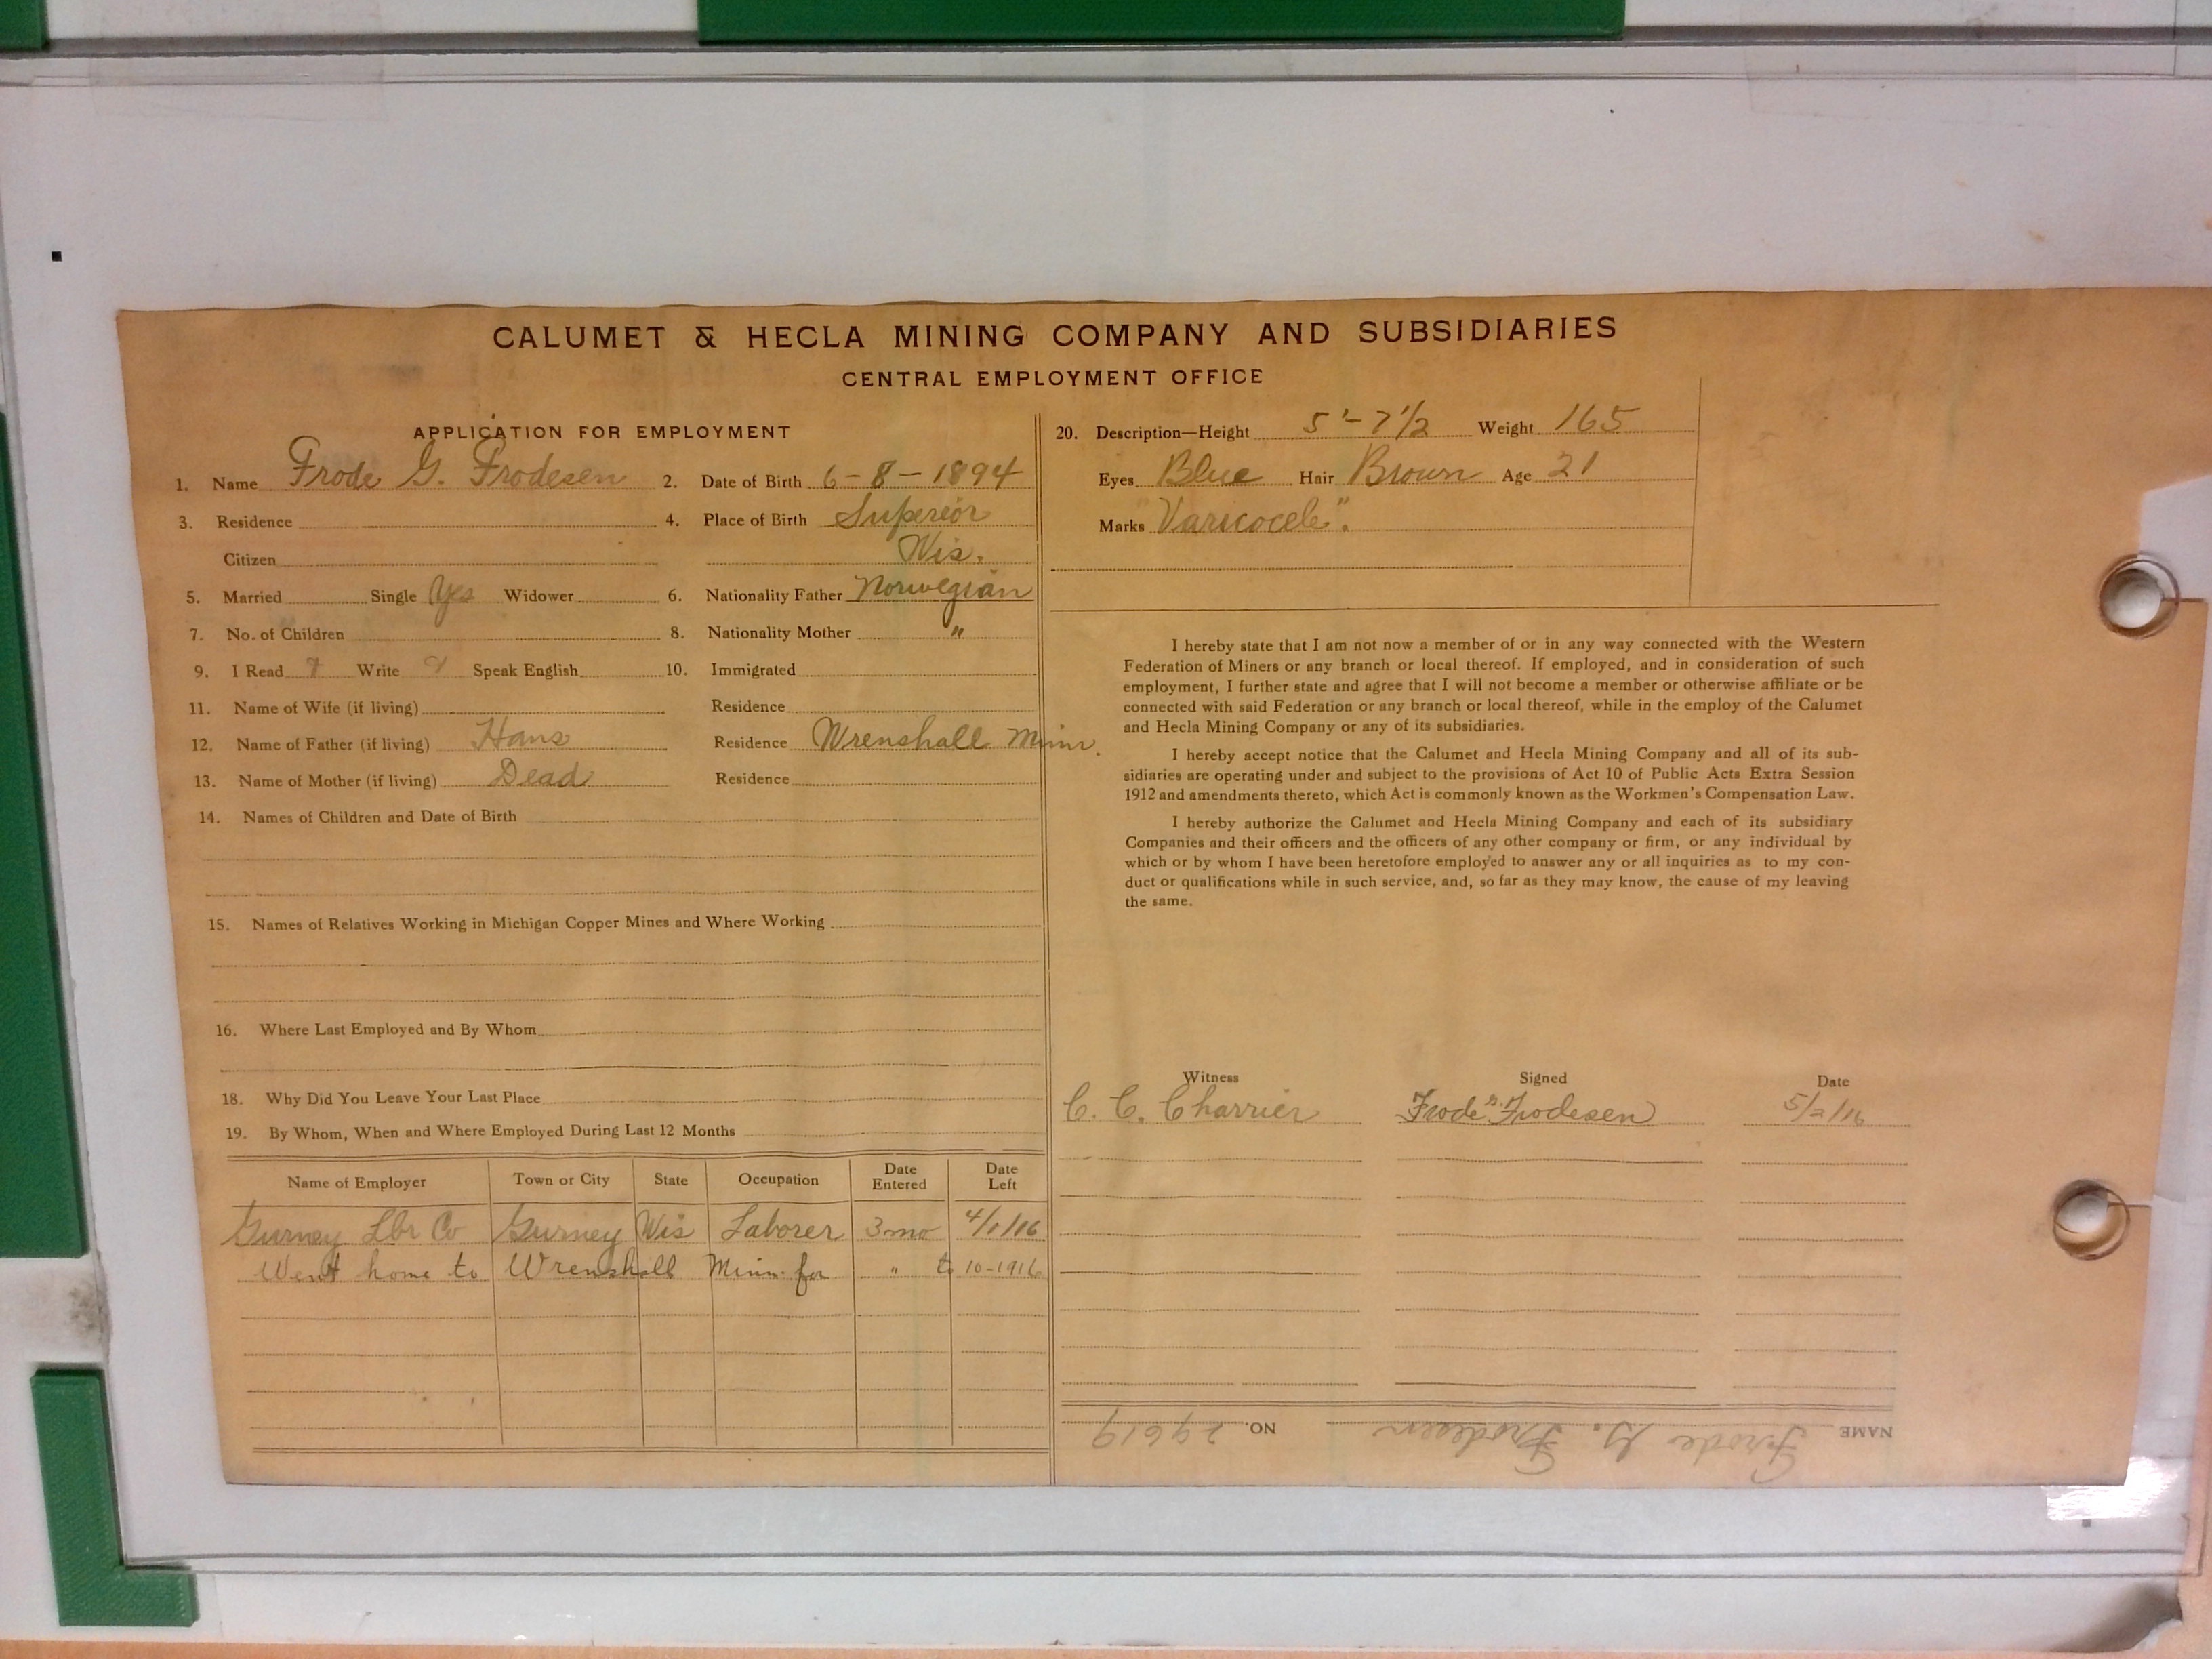 CALUMET & HECLA MINING COMPANY AND SUBSIDIARIES
CENTRAL EMPLOYMENT OFFICE
APPLICATION FOR EMPLOYMENT
1. Name Frode G. Frodesen 2. Date of Birth 6-8-1894
3. Residence 4. Place of Birth Superior
Citizen Wis.
5. Married Single Yes Widower 6. Nationality Father Norwegian
7. No. of Children 8. Nationality Mother "
9. I Read Write Speak English 10. Immigrated
11. Name of Wife (if living) Residence
12. Name of Father (if living) Hans Residence Wrenshall Minn.
13. Name of Mother (if living) Dead Residence
14. Names of Children and Date of Birth
15. Names of Relatives Working in Michigan Copper Mines and Where Working
16. Where Last Employed and By Whom
18. Why Did You Leave Your Last Place
19. By Whom, When and Where Employed During Last 12 Months
Name of Employer Town or City State Occupation Date Entered Date Left
Gurney Lbr Co Gurney Wis Laborer 3 mo 4/1/16
Went home to Wrenshall Minn. for " to 10-1916
20. Description—Height 5'-7 1/2 Weight 165
Eyes Blue Hair Brown Age 21
Marks "Varicocele".
I hereby state that I am not now a member of or in any way connected with the Western
Federation of Miners or any branch or local thereof. If employed, and in consideration of such
employment, I further state and agree that I will not become a member or otherwise affiliate or be
connected with said Federation or any branch or local thereof, while in the employ of the Calumet
and Hecla Mining Company or any of its subsidiaries.
I hereby accept notice that the Calumet and Hecla Mining Company and all of its sub-
sidiaries are operating under and subject to the provisions of Act 10 of Public Acts Extra Session
1912 and amendments thereto, which Act is commonly known as the Workmen's Compensation Law.
I hereby authorize the Calumet and Hecla Mining Company and each of its subsidiary
Companies and their officers and the officers of any other company or firm, or any individual by
which or by whom I have been heretofore employed to answer any or all inquiries as to my con-
duct or qualifications while in such service, and, so far as they may know, the cause of my leaving
the same.
Witness Signed Date
C. C. Charrier Frode G. Frodesen 5/2/16
NAME Frode G. Frodesen NO. 29619